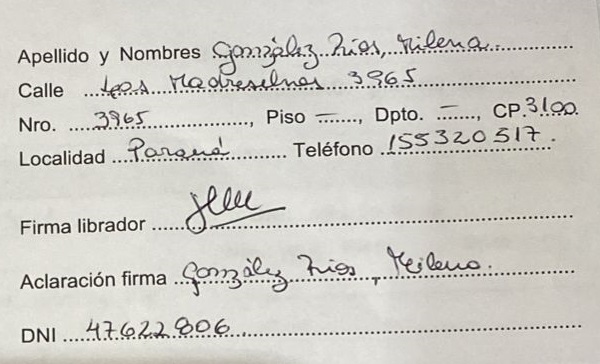 Apellido y Nombres González Rios, Milena.
Calle Las Madreselvas 3965
Nro. 3965, Piso —, Dpto. —, CP. 3100.
Localidad Paraná Teléfono 155320517.
Firma librador
Aclaración firma González Rios, Milena.
DNI 47622806